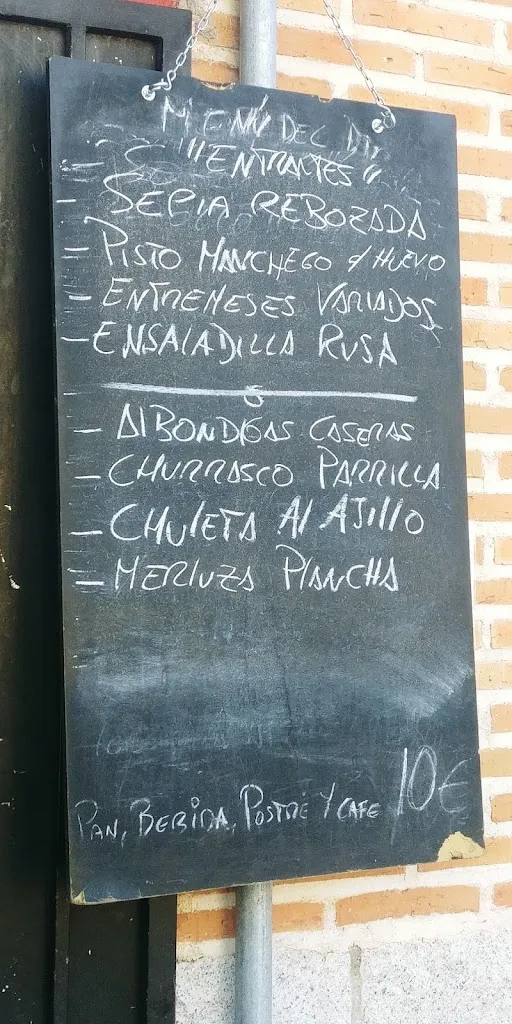 MENÚ DEL DÍA
"ENTRANTES"
- SEPIA REBOZADA
- PISTO MANCHEGO c/ HUEVO
- ENTREMESES VARIADOS
- ENSALADILLA RUSA
- ALBONDIGAS CASERAS
- CHURRASCO PARRILLA
- CHULETA AL AJILLO
- MERLUZA PLANCHA
PAN, BEBIDA, POSTRE Y CAFE 10€